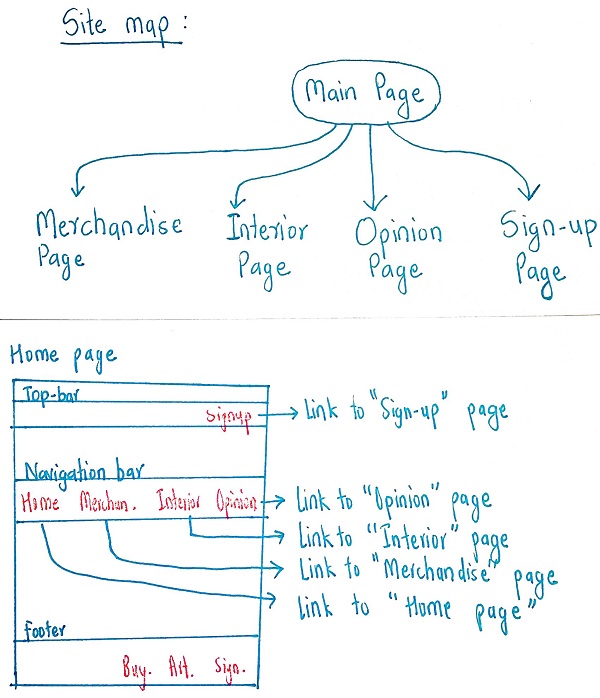 Site map :
Main Page
Merchandise Page
Interior Page
Opinion Page
Sign-up Page
Home page
Top-bar
Signup
Link to "Sign-up" page
Navigation bar
Home Merchan. Interior Opinion
Link to "Opinion" page
Link to "Interior" page
Link to "Merchandise" page
Link to "Home page"
footer
Buy. Art. Sign.